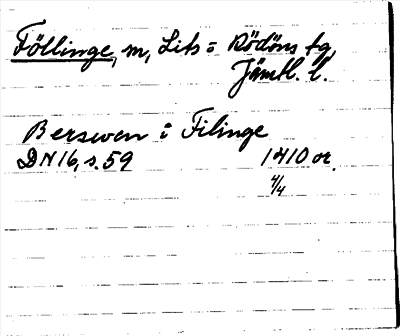 Föllinge, m, Lits = Rödöns tg,
Jämtl. l.
Berswen i Filinge
DN 16, s. 59 1410 or.
4/4